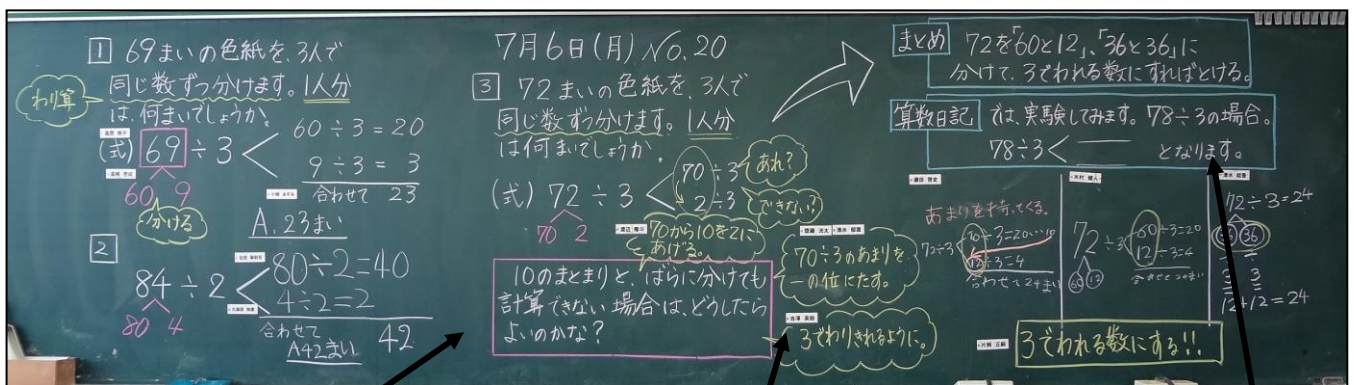 1 69まいの色紙を、3人で
同じ数ずつ分けます。1人分
は、何まいでしょうか。
わり算
(式) 69÷3
60÷3=20
9÷3=3
合わせて 23
60 9
分ける
A.23まい
2
84÷2
80÷2=40
4÷2=2
80 4
合わせて 42
A42まい
7月6日(月) No.20
3 72まいの色紙を、3人で
同じ数ずつ分けます。1人分
は何まいでしょうか。
(式) 72÷3
70÷3
2÷3
あれ?
できない?
70 2
70から10を2に
あげる。
70÷3のあまりを
一の位にたす。
10のまとまりと、ばらに分けても
計算できない場合は、どうしたら
よいのかな?
3でわりきれるように。
まとめ 72を「60と12」、「36と36」に
分けて、3でわれる数にすればとける。
算数日記 では、実験してみます。78÷3の場合。
78÷3 となります。
あまりを持ってくる。
72÷3
70÷3=20…10
12÷3=4
合わせて24まい
72÷3
60 12
60÷3=20
12÷3=4
合わせて24まい
72÷3=24
36 36
÷ ÷
3 3
12+12=24
3でわれる数にする!!